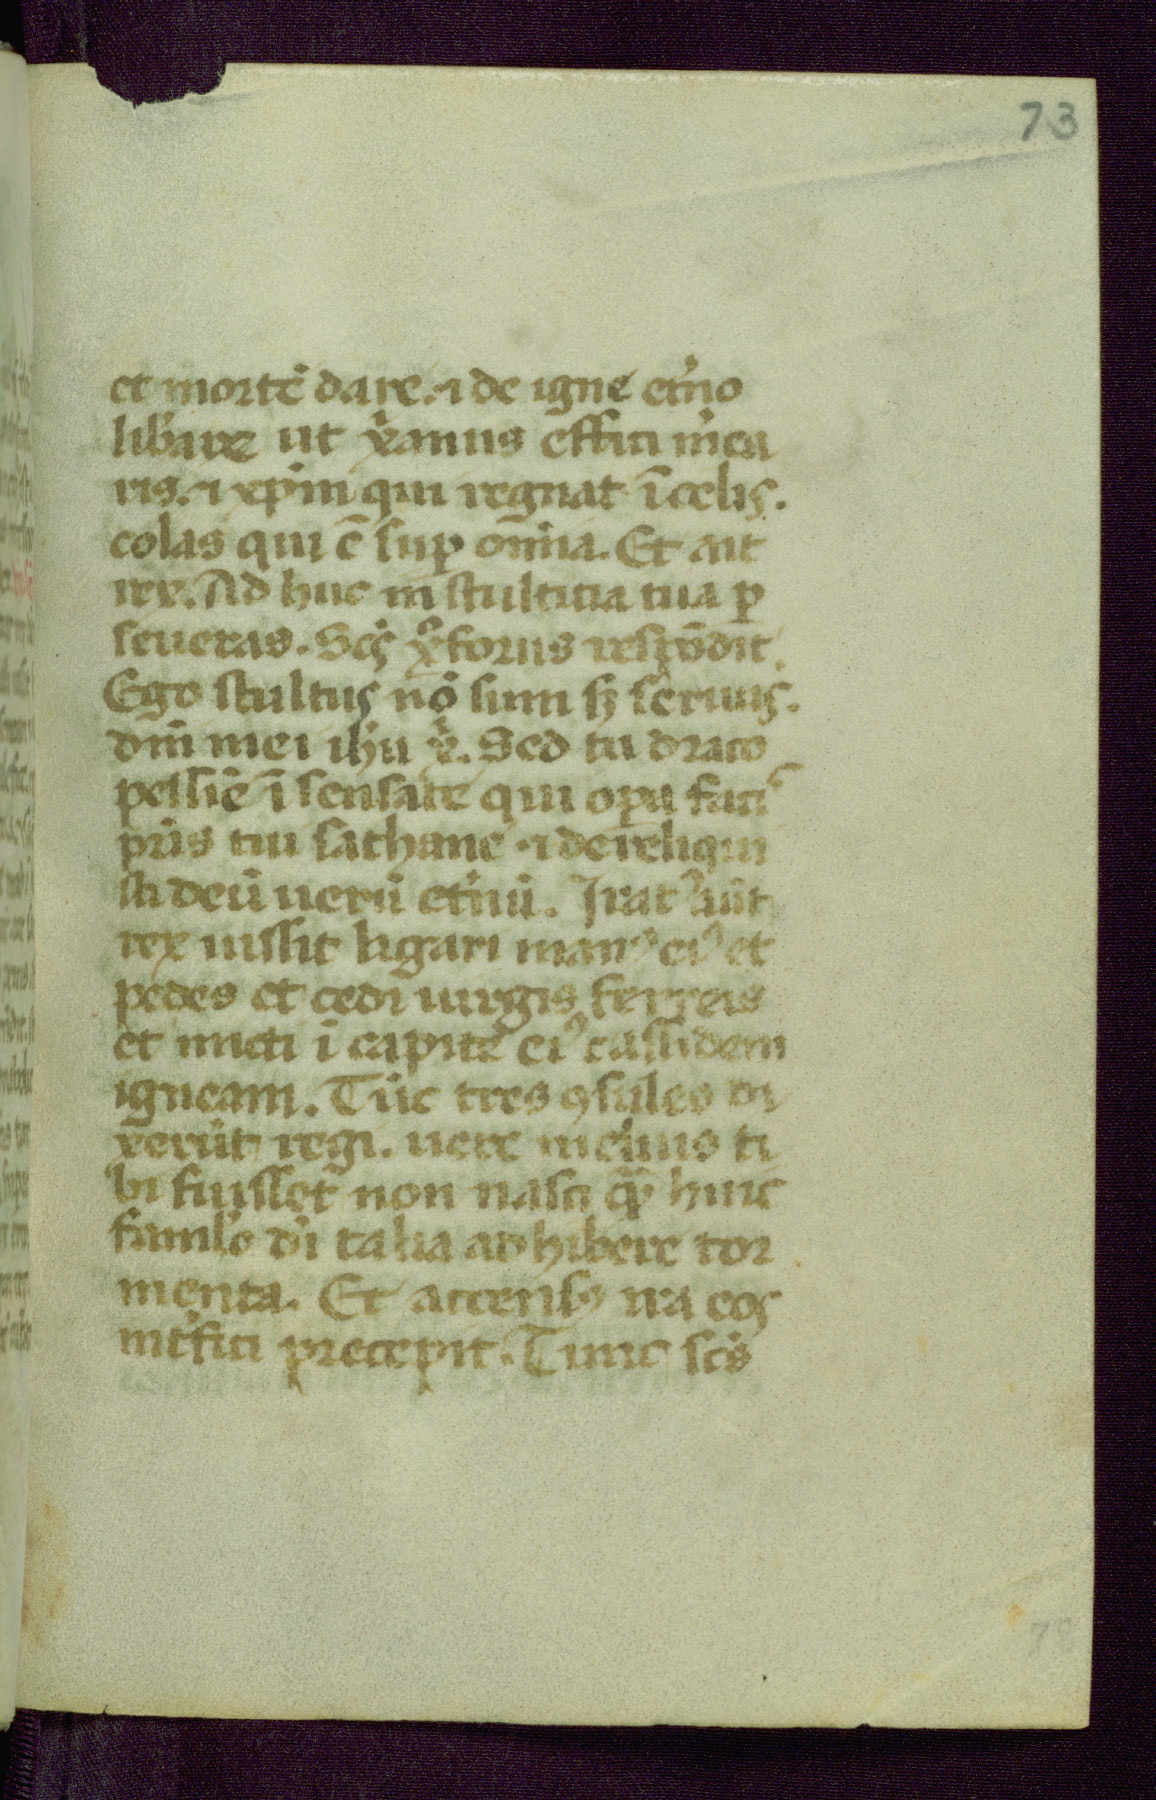 73
et mortē dare. ⁊ de igne et̃no
lib̃are ut x̃anus effici m̃ea
ris. ⁊ xp̃m qui regnat ī celis.
colas qui ē suꝑ om̃ia. Et ait
rex. Ad huc in stulticia tua ꝑ
seueras. Sc̃s x̃forus respõdit.
Ego stultus nõ sum sꝫ seruus.
dñi mei ih̃u x̃. Sed tu draco
pessīe ī sensate qui opa faci
pr̃is tui sathane ⁊ dereliqui
sti deū uerū et̃nū. Iratꝰ aūt
rex iussit ligari manꝰ eiꝰ et
pedes et cedi uirgis ferreis
et micti ī capite eiꝰ cassidem
igneam. Tūc tres ꝯsules di
xerūt regi. uere melius ti
bi fuisset non nasci q̃ꝫ huic
famulo dī talia ad hibere tor
menta. Et accensꝰ ira eos
int̃fici precepit. Tunc sc̃s